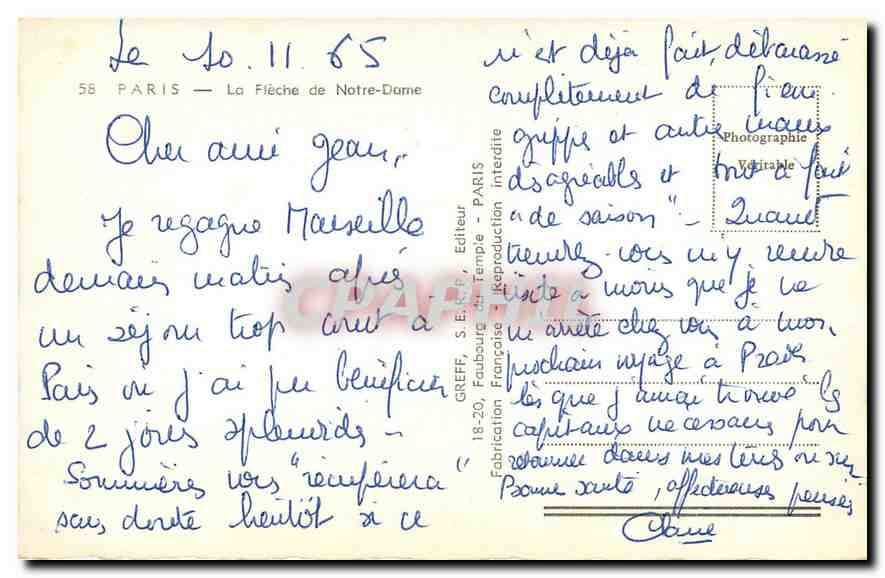 Le 10.11.65
58 PARIS — La Flèche de Notre-Dame
Cher ami Jean,
Je regagne Marseille
demain matin après
un séjour trop court à
Paris où j'ai pu bénéficier
de 2 jours splendides —
Sommières vous "récupèrera"
sans doute bientôt si ce
n'est déjà fait, débarassé
complètement de
grippe et autre maux
désagréables et tout à fait
"de saison" — Quand
viendrez-vous m'y rendre
visite à moins que je ne
m'arrête chez vous à mon
prochain voyage à
dès que j'aurai trouvé les
capitaux nécessaires pour
retourner dans mes
Bonne santé, affectueuses pensées
Claire
GREFF, S.E.R.P., Editeur
18-20, Faubourg du Temple - PARIS
Fabrication Française Reproduction interdite
Photographie
Véritable
CPARAMA